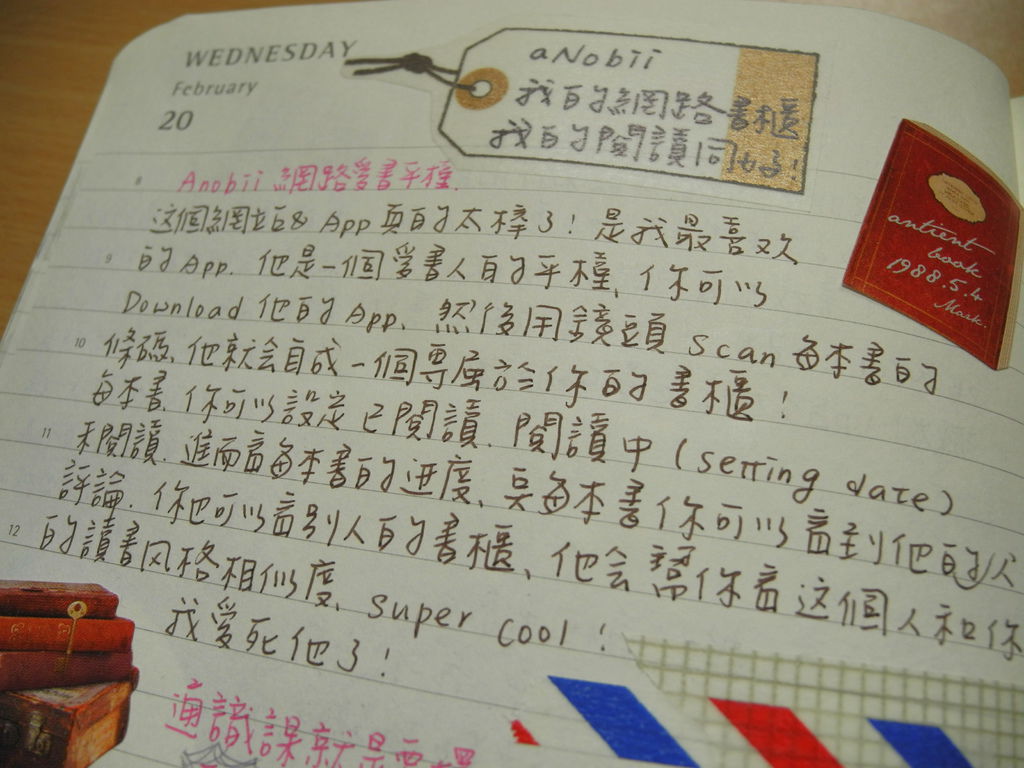 WEDNESDAY
February
20
aNobii
我的網路書櫃
我的閱讀同好!
8
Anobii 網路愛書平檯.
这個網站& App 真的太棒了! 是我最喜欢
9
的App. 他是一個愛書人的平檯, 你可以
Download 他的App. 然後用鏡頭 scan 每本書的
10
條碼, 他就会自成一個專屬於你的書櫃!
每本書, 你可以設定 已閱讀. 閱讀中 (setting date)
11
未閱讀. 進而看每本書的进度、
每本書你可以看到他的
評論. 你也可以看别人的書櫃、他会幫你看这個人和你
12
的讀書风格相似度、super cool!
我愛死他了!
通識課就是
antient
book
1988.5.4
Mark.